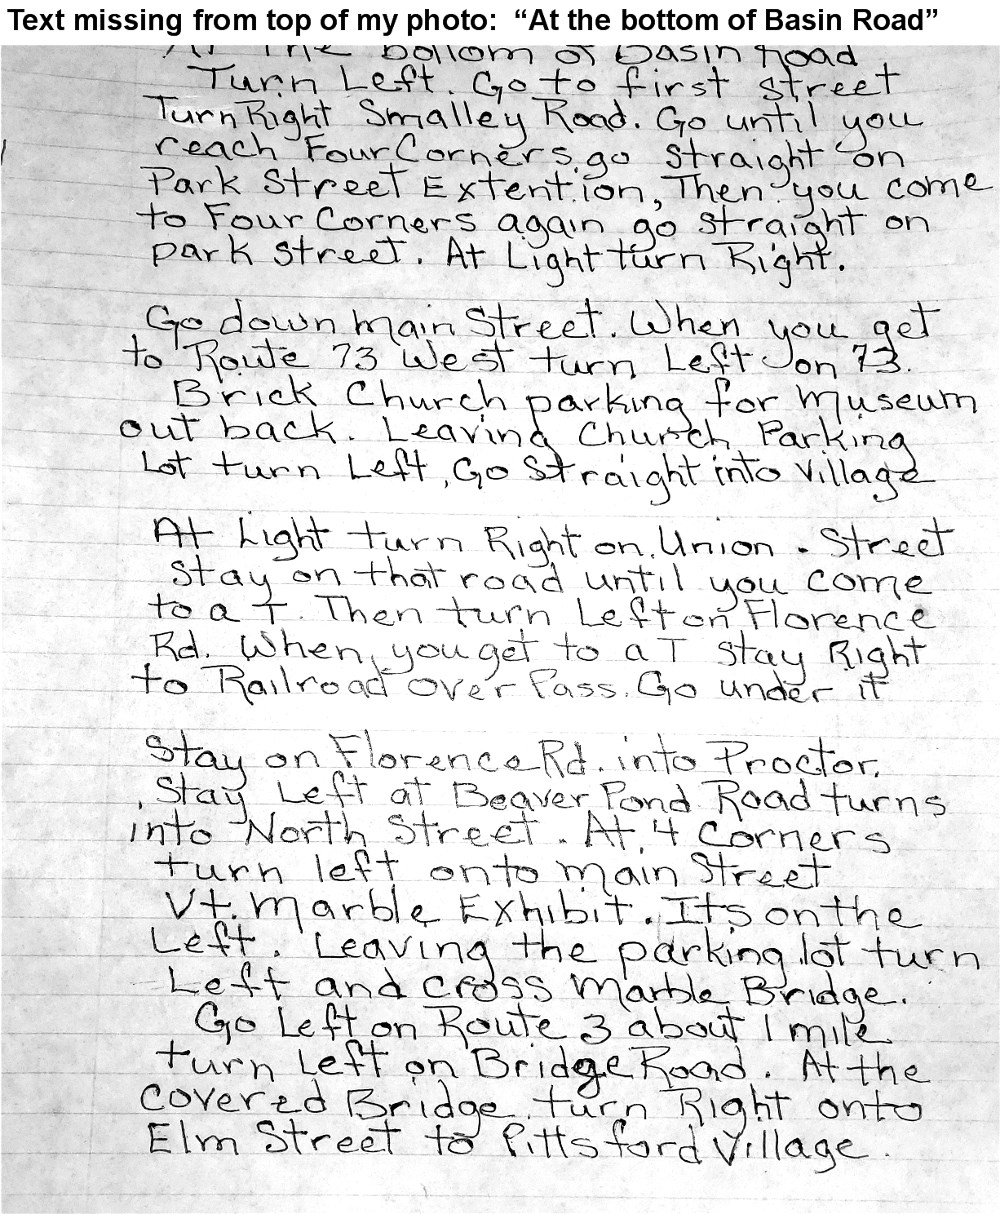 Text missing from top of my photo: “At the bottom of Basin Road”
At the bottom of Basin Road
Turn Left. Go to first street
Turn Right Smalley Road. Go until you
reach Four Corners, go straight on
Park Street Extention, Then you come
to Four Corners again go straight on
park street. At Light turn Right.
Go down main Street. When you get
to Route 73 West turn Left on 73.
Brick Church parking for museum
out back. Leaving Church Parking
Lot turn Left, Go Straight into Village
At Light turn Right on Union Street
Stay on that road until you come
to a T. Then turn Left on Florence
Rd. When you get to a T stay Right
to Railroad over Pass. Go under it
Stay on Florence Rd. into Proctor.
Stay Left at Beaver Pond Road turns
into North Street. At 4 Corners
turn left onto main Street
Vt. marble Exhibit. Its on the
Left. Leaving the parking lot turn
Left and cross marble Bridge.
Go Left on Route 3 about 1 mile
turn Left on Bridge Road. At the
covered Bridge turn Right onto
Elm Street to Pittsford Village.